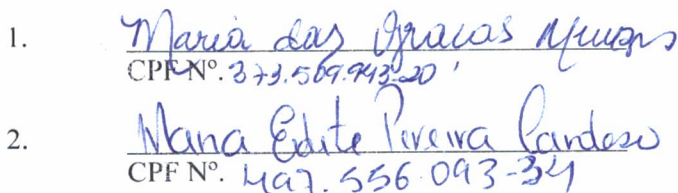 1. Maria das Graças
CPF Nº. 373.569.943-20
2. Maria Edite Pereira Cardoso
CPF Nº. 497.556.093-34